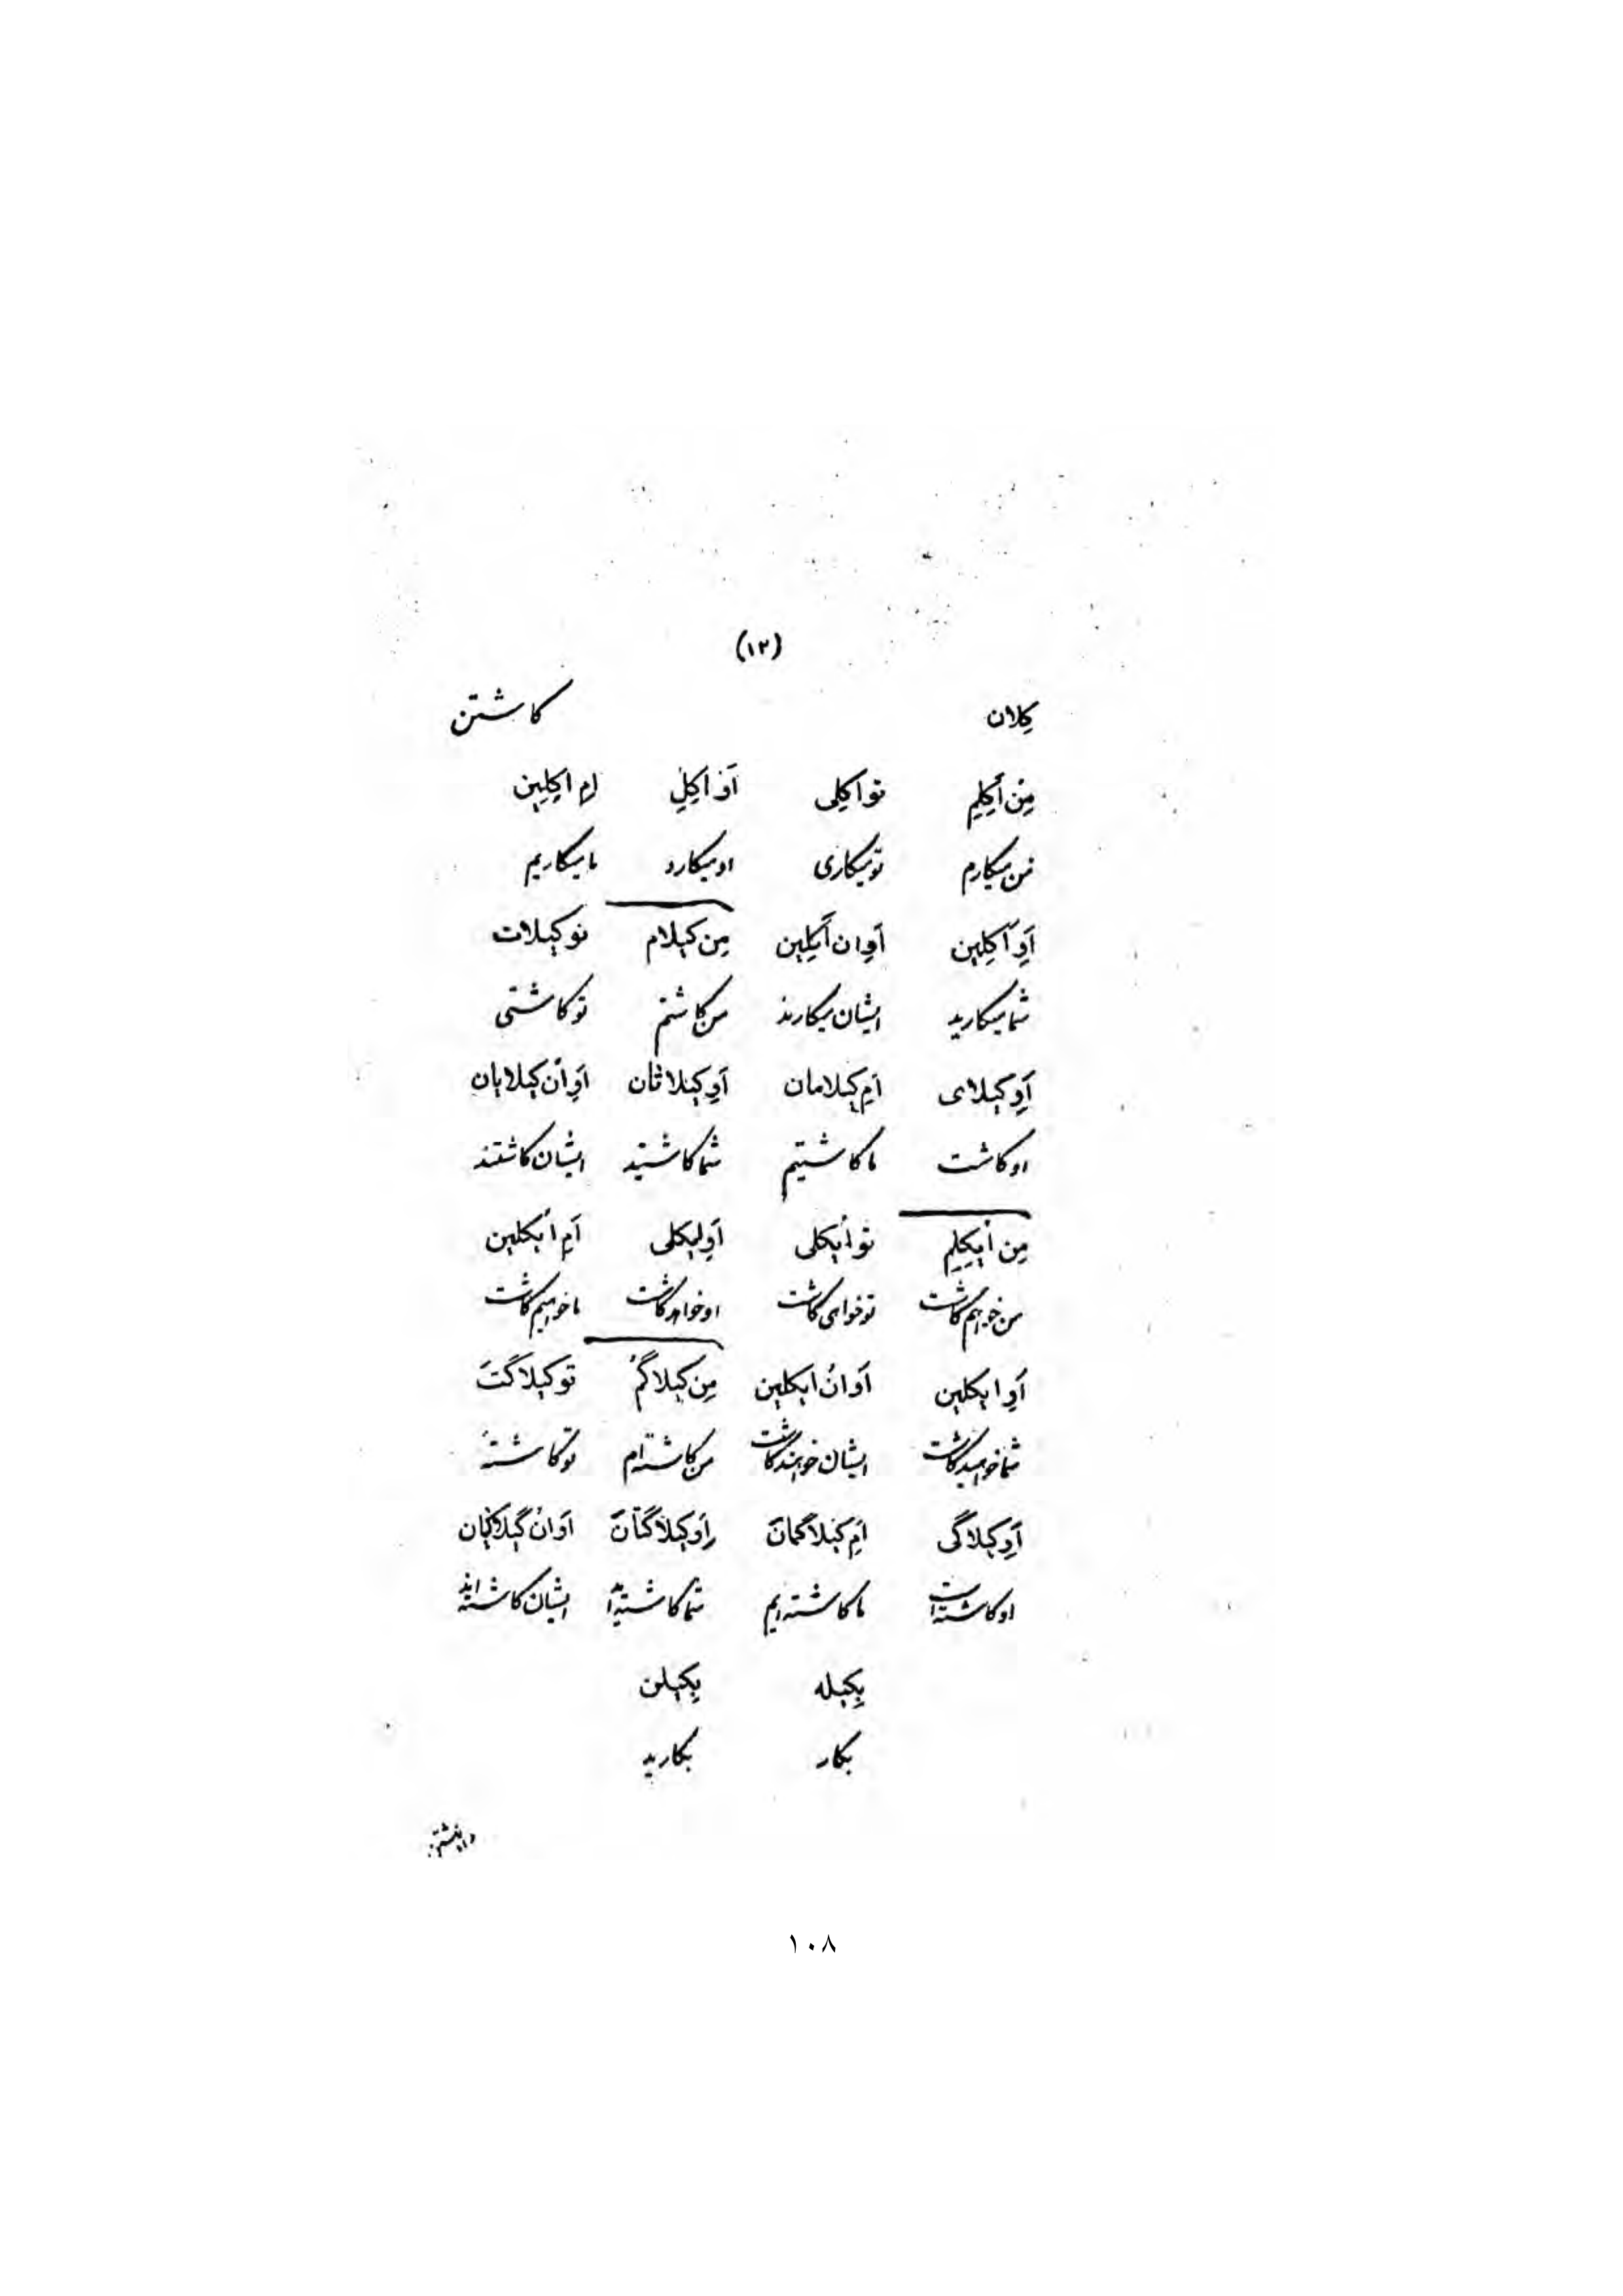 (۱۲)
کِلان کاشتن
مِن اَکِلِم تو اکِلی اَو اکِلِ اِم اکِلِین
من میکارم تو میکاری او میکارد ما میکاریم
اَوِ اَکِلین اَوان اَکِلین مِن کیلام تو کیلات
شما میکارید ایشان میکارند من کاشتم تو کاشتی
اَوِ کیلای اَم کیلامان اَوِ کیلاتان اَوان کیلایان
او کاشت ما کاشتیم شما کاشتید ایشان کاشتند
مِن اَیکِلِم تو اَیکلی اَوِ ایکلی اَم اَیکلین
من خواهم کاشت تو خواهی کاشت او خواهد کاشت ما خواهیم کاشت
اَوِ ایکلین اَوانُ ایکلین مِن کیلاگُم تو کیلاگَت
شما خواهید کاشت ایشان خواهند کاشت من کاشته‌ام تو کاشتهٔ
اَوِ کیلاگی اَمِ کیلاگمان اَوِ کیلاگتان اَوانُ کیلاگیان
او کاشته است ما کاشته‌ایم شما کاشته‌اید ایشان کاشته‌اند
بِکیله بِکیلن
بکار بکارید
۱۰۸